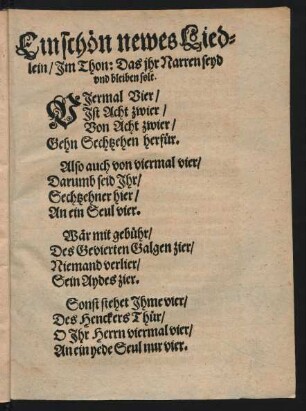 Ein schön newes Lied-
lein / Im Thon: Das jhr Narren seyd
vnd bleiben solt.
VIermal Vier /
Ist Acht zwier /
Von Acht zwier /
Gehn Sechtzehen herfür.
Also auch von viermal vier /
Darumb seid Ihr /
Sechtzehner hier /
An ein Seul vier.
Wär mit gebühr /
Des Gevierten Galgen zier /
Niemand verlier /
Sein Aydes zier.
Sonst stehet Ihme vier /
Des Henckers Thür /
O Ihr Herrn viermal vier /
An ein yede Seul nur vier.